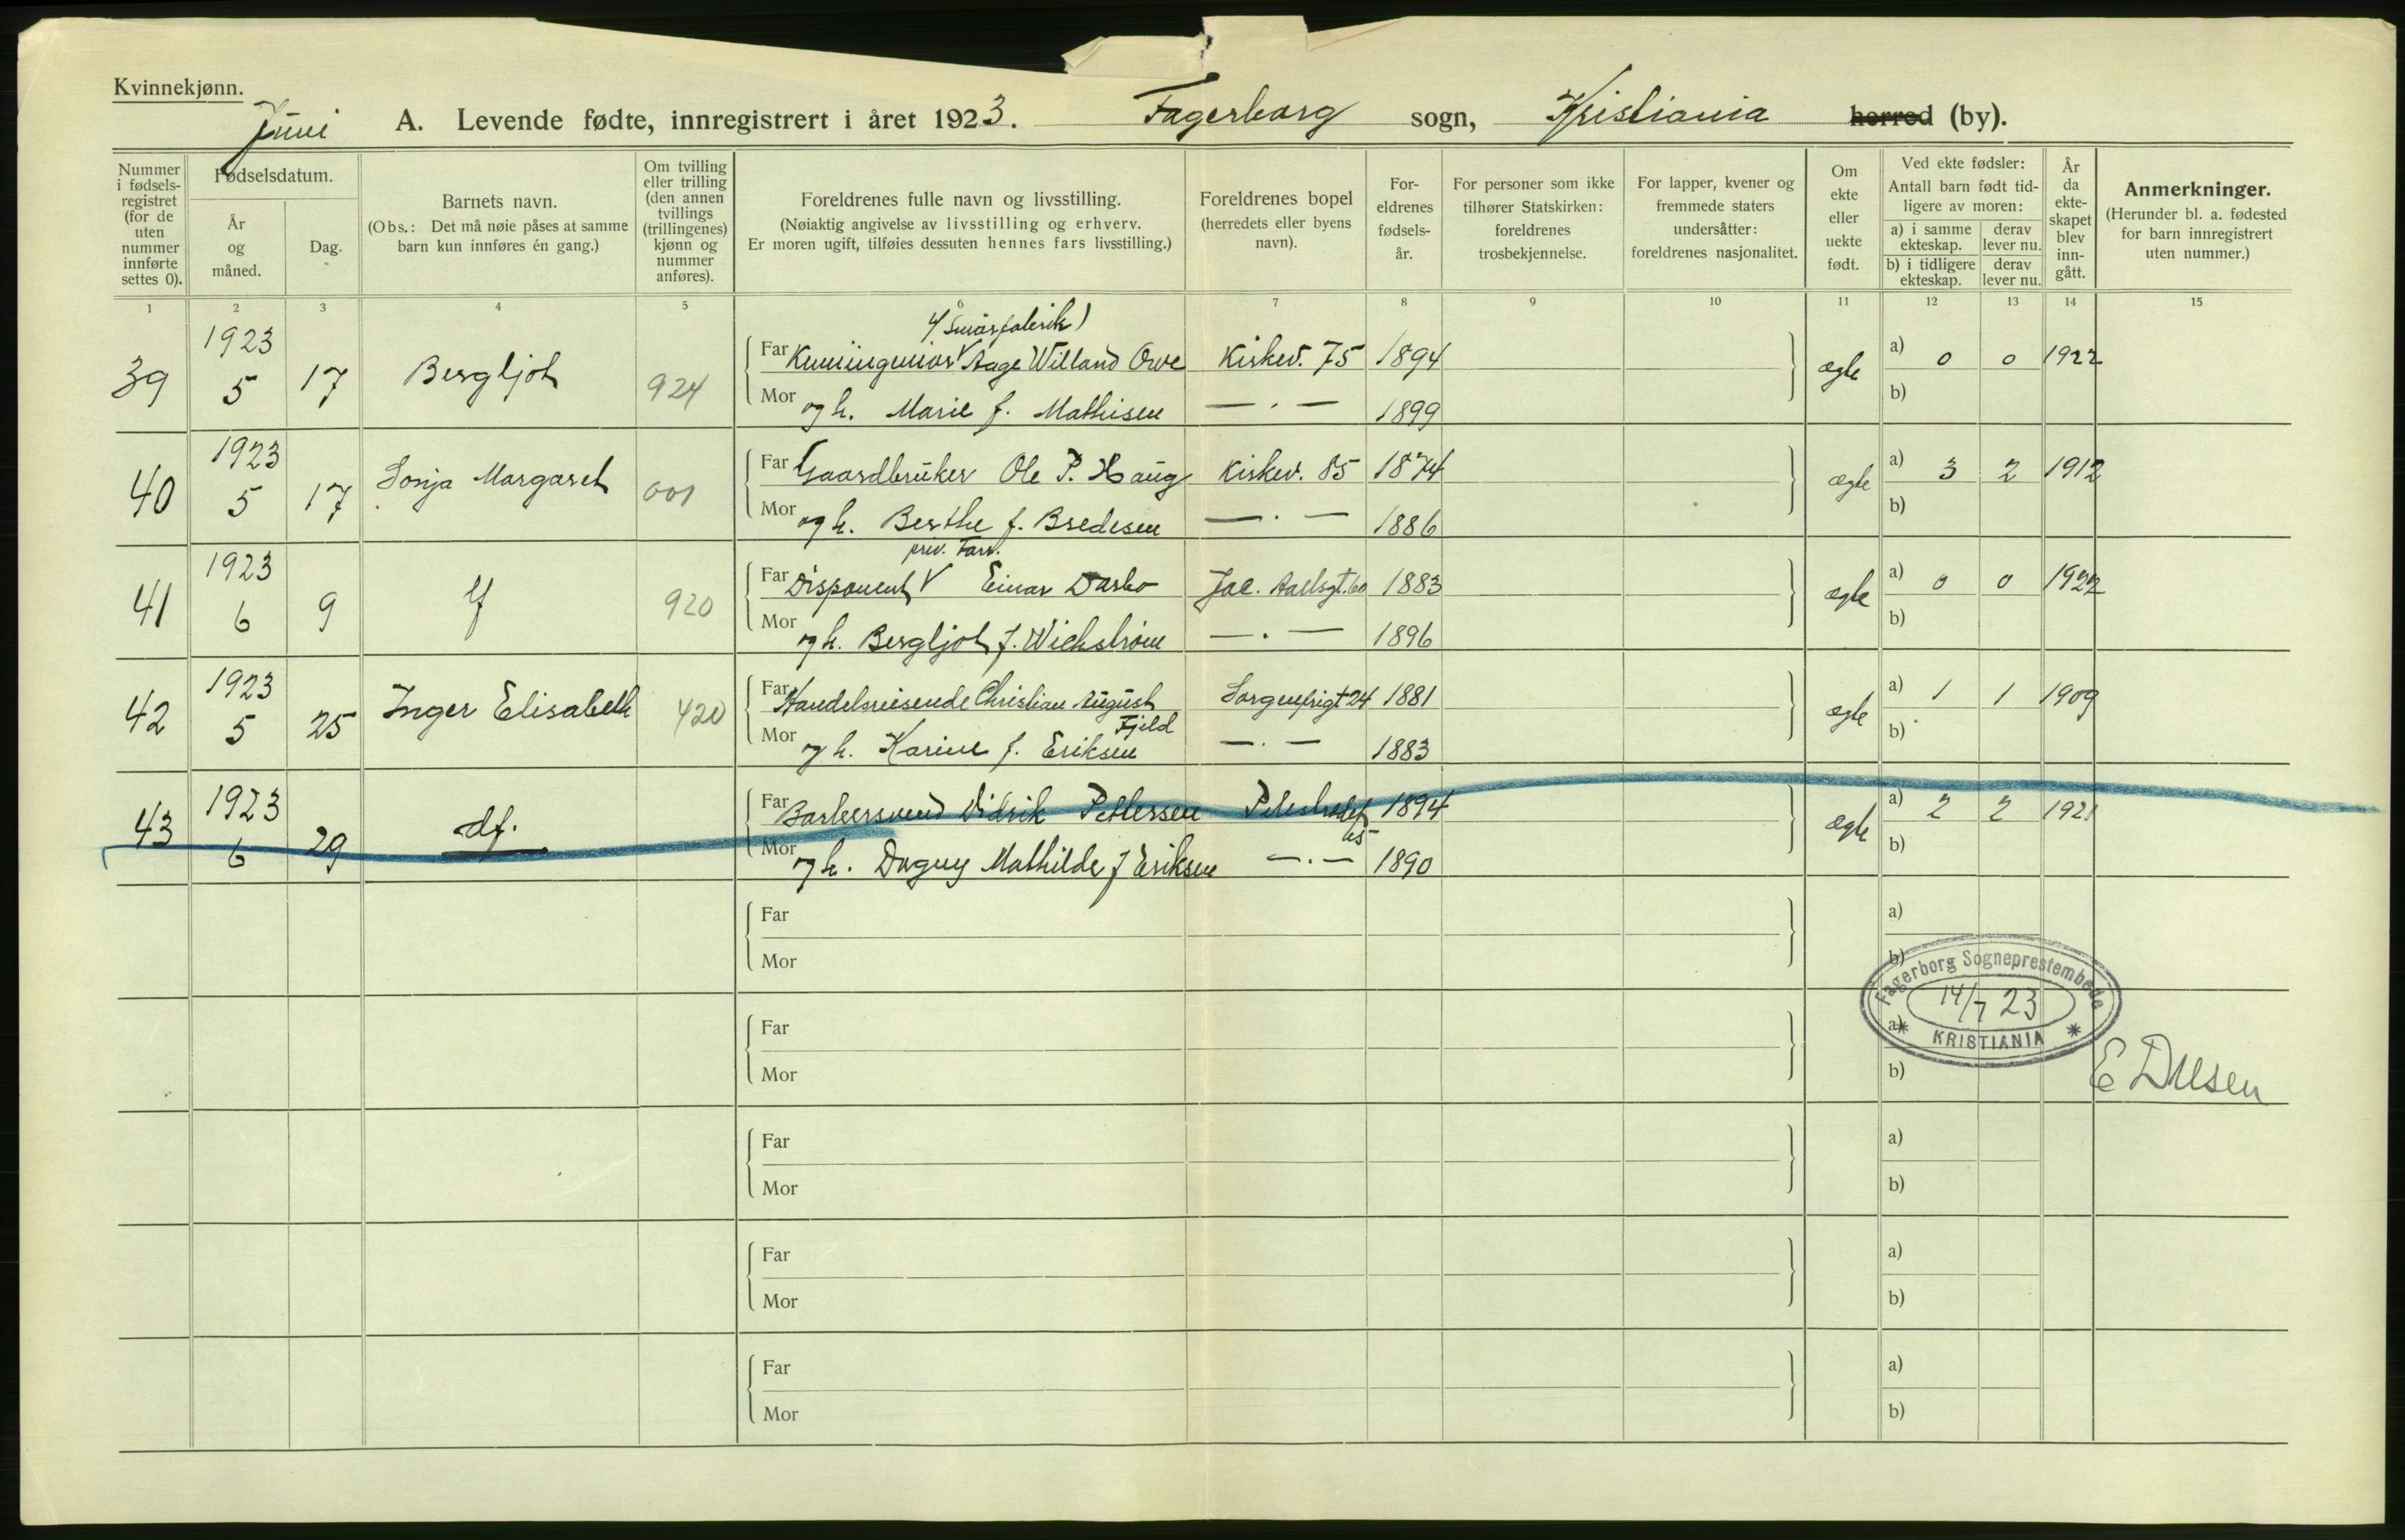 Kvinnekjønn.
Juni A. Levende fødte, innregistrert i året 1923. Fagerborg sogn, Kristiania herred (by).
Nummer i fødsels-registret (for de uten nummer innførte settes 0).
Fødselsdatum.
År og måned.
Dag.
Barnets navn.
(Obs.: Det må nøie påses at samme barn kun innføres én gang.)
Om tvilling eller trilling (den annen tvillings (trillingenes) kjønn og nummer anføres).
Foreldrenes fulle navn og livsstilling.
(Nøiaktig angivelse av livsstilling og erhverv.
Er moren ugift, tilføies dessuten hennes fars livsstilling.)
Foreldrenes bopel
(herredets eller byens navn).
For-eldrenes fødsels-år.
For personer som ikke tilhører Statskirken: foreldrenes trosbekjennelse.
For lapper, kvener og fremmede staters undersåtter: foreldrenes nasjonalitet.
Om ekte eller uekte født.
Ved ekte fødsler:
Antall barn født tid-ligere av moren:
a) i samme ekteskap.
derav lever nu.
b) i tidligere ekteskap.
derav lever nu.
År da ekte-skapet blev inn-gått.
Anmerkninger.
(Herunder bl. a. fødested for barn innregistrert uten nummer.)
1 2 3 4 5 6 7 8 9 10 11 12 13 14 15
39 1923 5 17 Bergljot 924
Far Kemiingeniør Aage Willand Owe Kirkev. 75 1894 ægte a) 0 0 1922
Mor og h. Marie f. Mathisen — . — 1899 b)
40 1923 5 17 Sonja Margaret 001
Far Gaardbruker Ole P. Haug Kirkev. 85 1874 ægte a) 3 2 1912
Mor og h. Berthe f. Bredesen — . — 1886 b)
priv. Forr.
41 1923 6 9 920
Far Disponent V Einar Dasbo Jac. Aallsgt. 60 1883 ægte a) 0 0 1922
Mor og h. Bergljot f. Wichstrøm — . — 1896 b)
42 1923 5 25 Inger Elisabeth 420
Far Handelsreisende Christian August Fjeld Sorgenfrigt 24 1881 ægte a) 1 1 1909
Mor og h. Karine f. Eriksen — . — 1883 b)
43 1923 6 29 df.
Far Barbersvend Didrik Pettersen Pilestredet 65 1894 ægte a) 2 2 1921
Mor og h. Dagny Mathilde f Eriksen — . — 1890 b)
Far a)
Mor b)
Fagerborg Sogneprestembede
14/7 23
* KRISTIANIA *
Far a)
Mor b)
E Dresen
Far a)
Mor b)
Far a)
Mor b)
Far a)
Mor b)